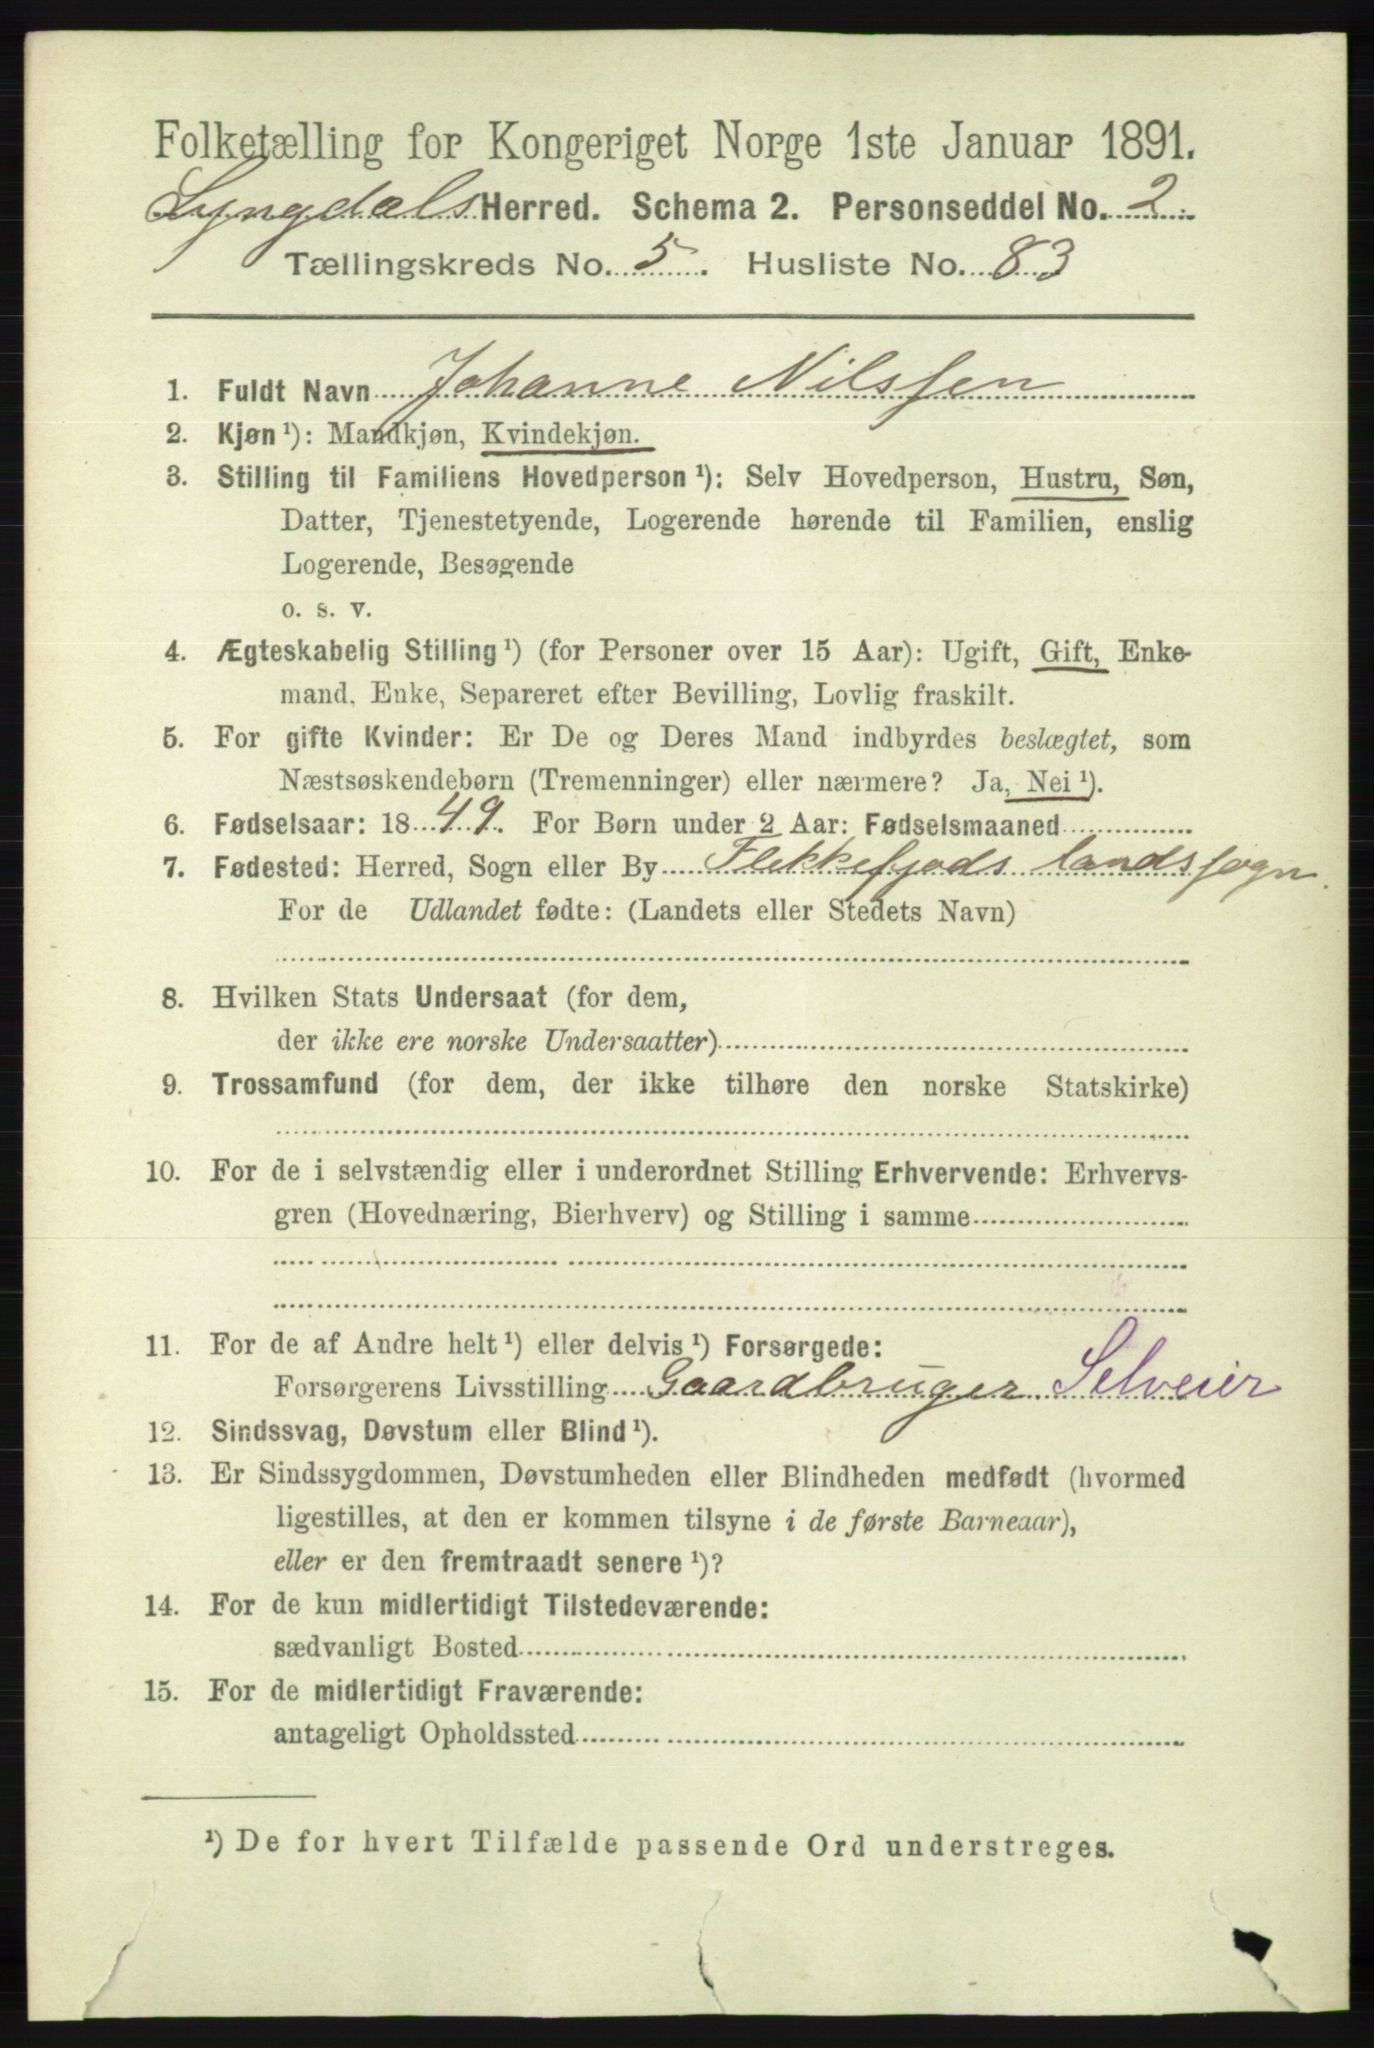 Folketælling for Kongeriget Norge 1ste Januar 1891.
Lyngdals Herred. Schema 2. Personseddel No. 2.
Tællingskreds No. 5. Husliste No. 83
1. Fuldt Navn Johanne Nilssen
2. Kjøn ¹): Mandkjøn, Kvindekjøn.
3. Stilling til Familiens Hovedperson ¹): Selv Hovedperson, Hustru, Søn,
Datter, Tjenestetyende, Logerende hørende til Familien, enslig
Logerende, Besøgende
o. s. v.
4. Ægteskabelig Stilling ¹) (for Personer over 15 Aar): Ugift, Gift, Enke-
mand, Enke, Separeret efter Bevilling, Lovlig fraskilt.
5. For gifte Kvinder: Er De og Deres Mand indbyrdes beslægtet, som
Næstsøskendebørn (Tremenninger) eller nærmere? Ja, Nei ¹).
6. Fødselsaar: 1849. For Børn under 2 Aar: Fødselsmaaned
7. Fødested: Herred, Sogn eller By Flekkefjods landssogn.
For de Udlandet fødte: (Landets eller Stedets Navn)
8. Hvilken Stats Undersaat (for dem,
der ikke ere norske Undersaatter)
9. Trossamfund (for dem, der ikke tilhøre den norske Statskirke)
10. For de i selvstændig eller i underordnet Stilling Erhvervende: Erhvervs-
gren (Hovednæring, Bierhverv) og Stilling i samme
11. For de af Andre helt ¹) eller delvis ¹) Forsørgede:
Forsørgerens Livsstilling Gaardbruger Selveier
12. Sindssvag, Døvstum eller Blind ¹).
13. Er Sindssygdommen, Døvstumheden eller Blindheden medfødt (hvormed
ligestilles, at den er kommen tilsyne i de første Barneaar),
eller er den fremtraadt senere ¹)?
14. For de kun midlertidigt Tilstedeværende:
sædvanligt Bosted
15. For de midlertidigt Fraværende:
antageligt Opholdssted
¹) De for hvert Tilfælde passende Ord understreges.